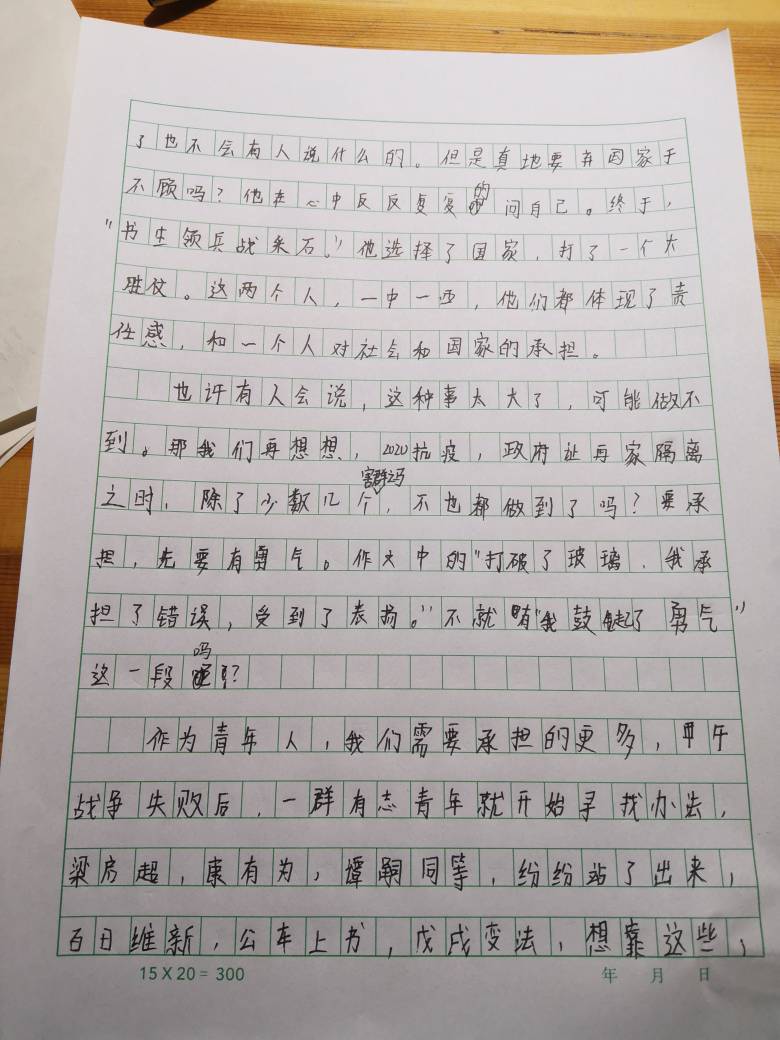 了也不会有人说什么的。但是真地要弃国家于
不顾吗？他在心中反反复复的问自己。终于，
“书生领兵战采石。”他选择了国家，打了一个大
胜仗。这两个人，一中一西，他们都体现了责
任感，和一个人对社会和国家的承担。
也许有人会说，这种事太大了，可能做不
到。那我们再想想，2020抗疫，政府让再家隔离
之时，除了少数几个害群之马，不也都做到了吗？要承
担，先要有勇气。作文中的“打破了玻璃，我承
担了错误，受到了表扬。”不就有“我鼓起了勇气”
这一段吗？
作为青年人，我们需要承担的更多，甲午
战争失败后，一群有志青年就开始寻找办法，
梁启超，康有为，谭嗣同等，纷纷站了出来，
百日维新，公车上书，戊戌变法，想靠这些，
15×20=300 年 月 日